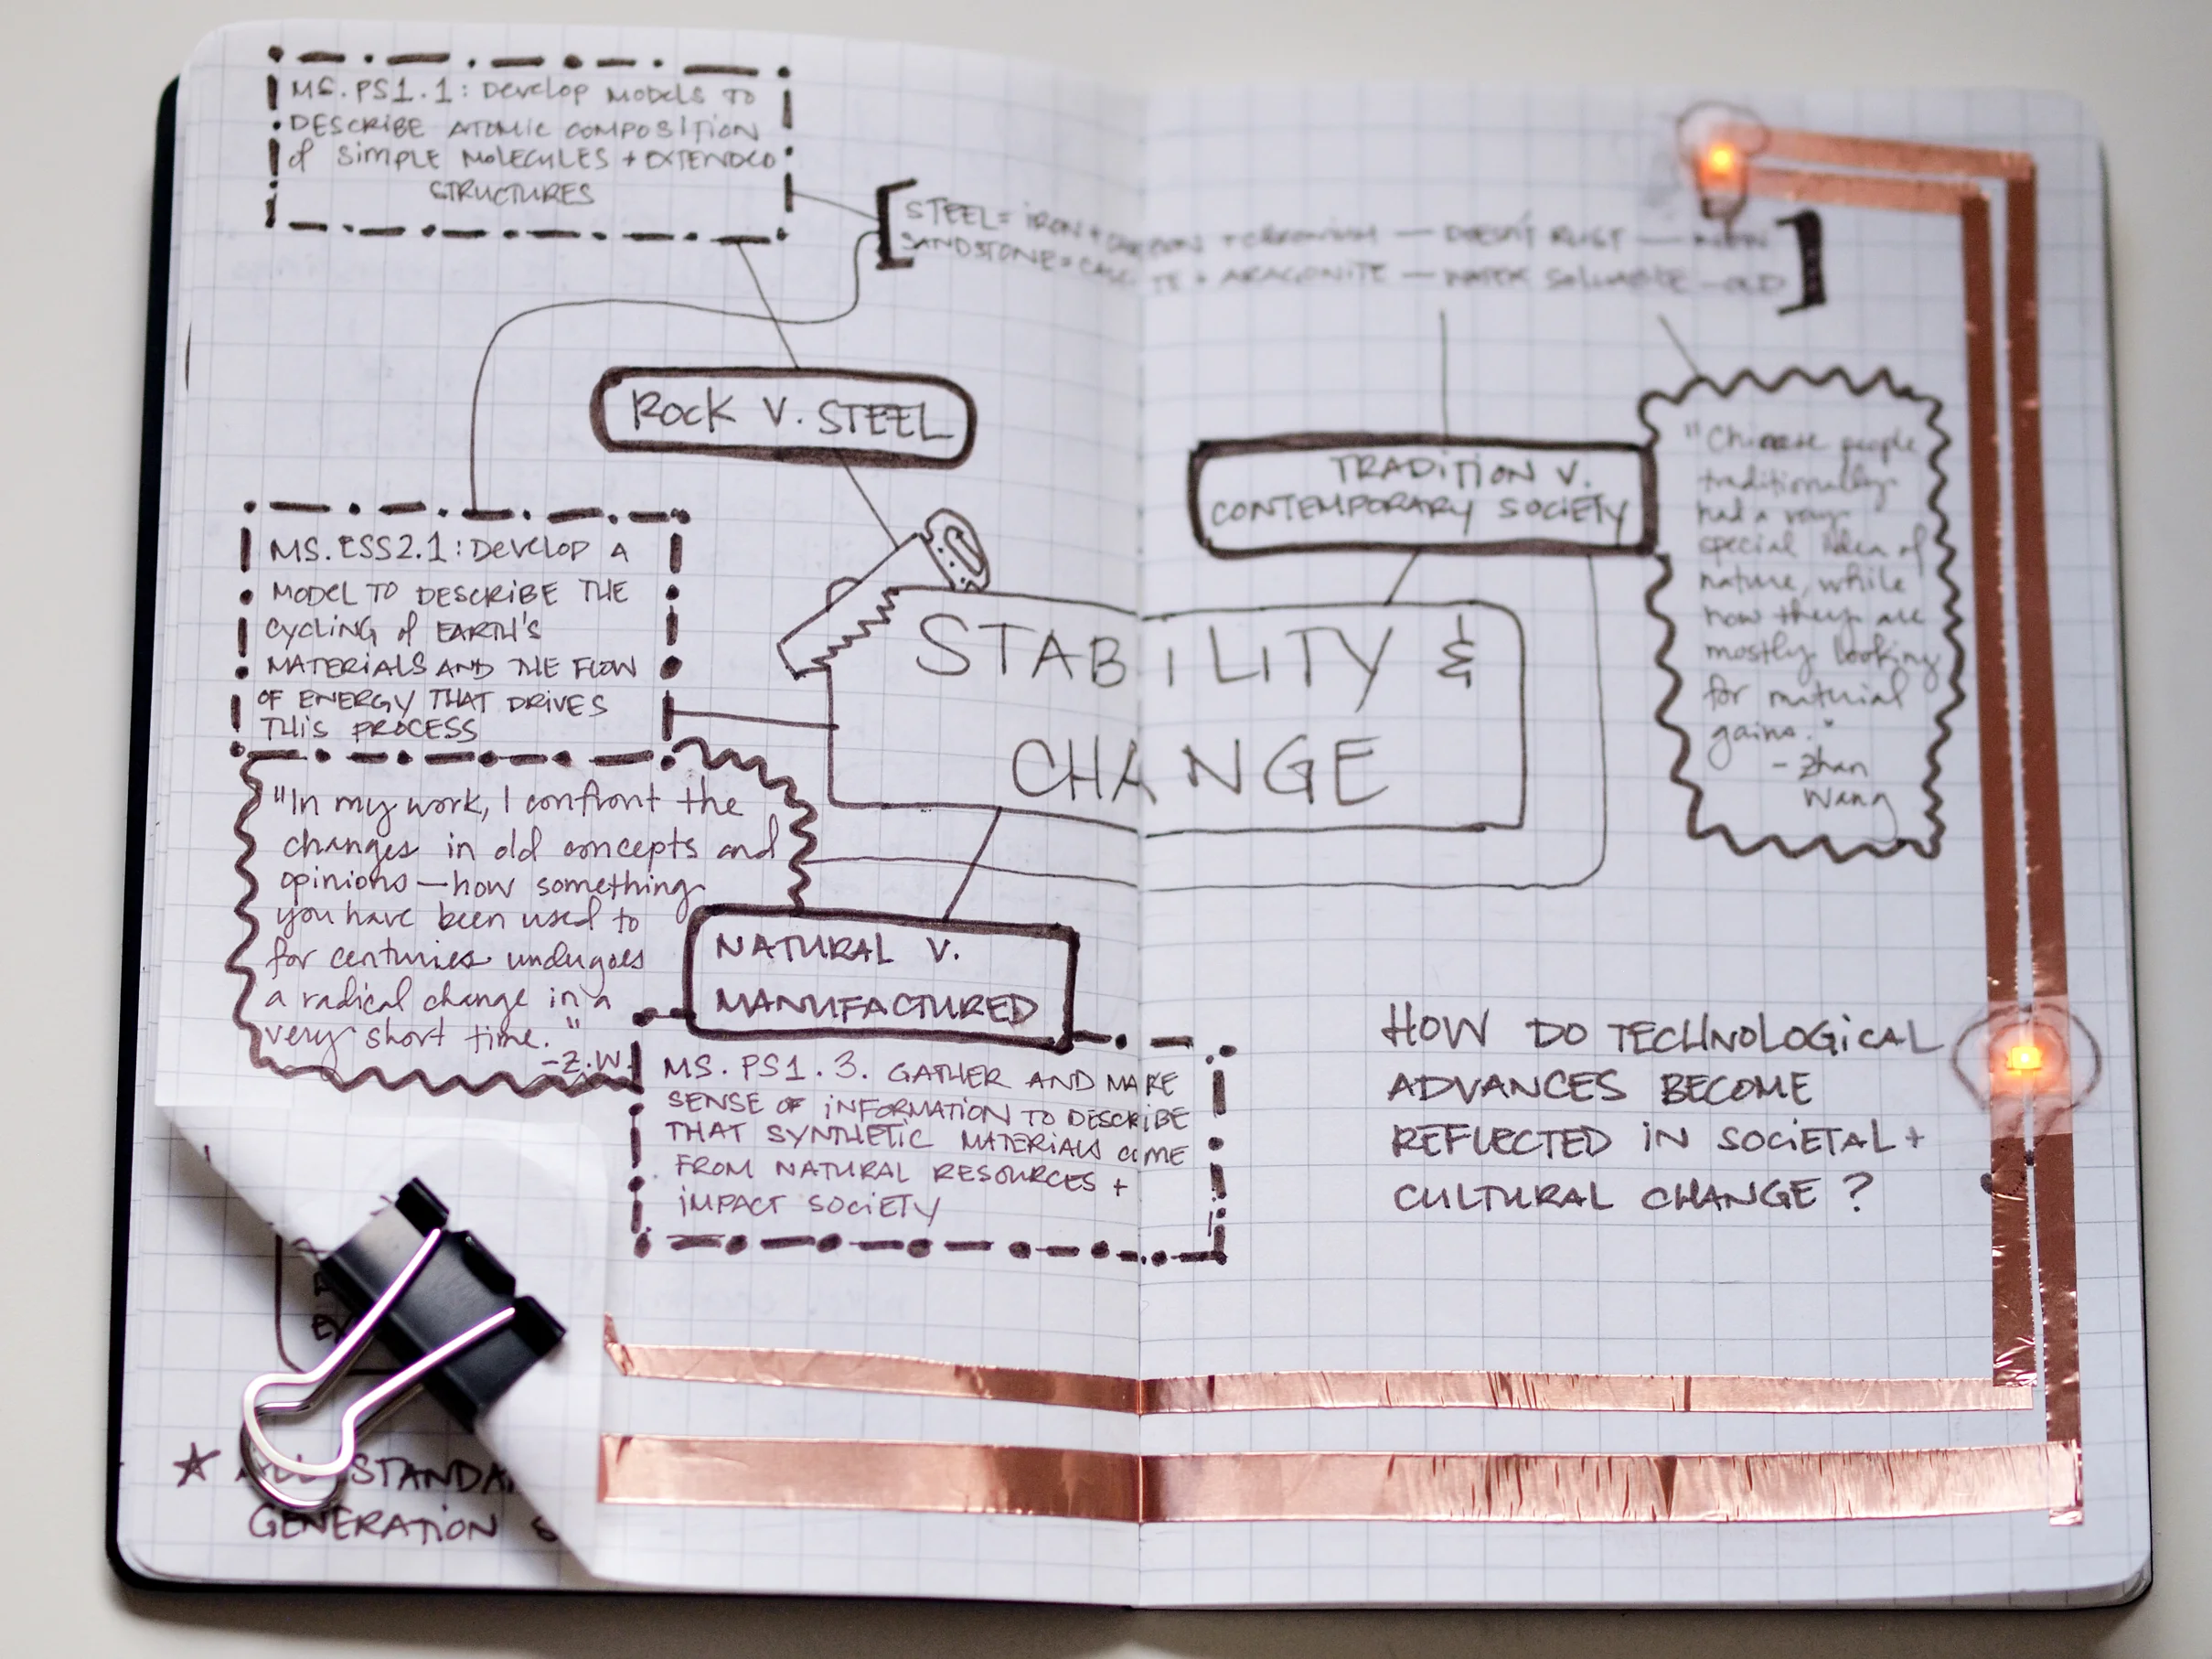 MS.PS1.1: Develop models to
describe atomic composition
of simple molecules + extended
structures
[STEEL = iron + carbon + chromium — doesn't rust — new
SANDSTONE = calcite + aragonite — water soluable — old]
ROCK V. STEEL
TRADITION V.
CONTEMPORARY SOCIETY
"Chinese people
traditionally
had a very
special idea of
nature, while
now they are
mostly looking
for material
gains."
- Zhan
Wang
MS.ESS2.1: Develop a
model to describe the
cycling of Earth's
materials and the flow
of energy that drives
this process
STABILITY &
CHANGE
"In my work, I confront the
changes in old concepts and
opinions — how something
you have been used to
for centuries undergoes
a radical change in a
very short time."
- Z.W.
NATURAL V.
MANUFACTURED
MS. PS1.3. GATHER AND MAKE
SENSE OF INFORMATION TO DESCRIBE
THAT SYNTHETIC MATERIALS COME
FROM NATURAL RESOURCES +
IMPACT SOCIETY
HOW DO TECHNOLOGICAL
ADVANCES BECOME
REFLECTED IN SOCIETAL +
CULTURAL CHANGE?
GENERATION